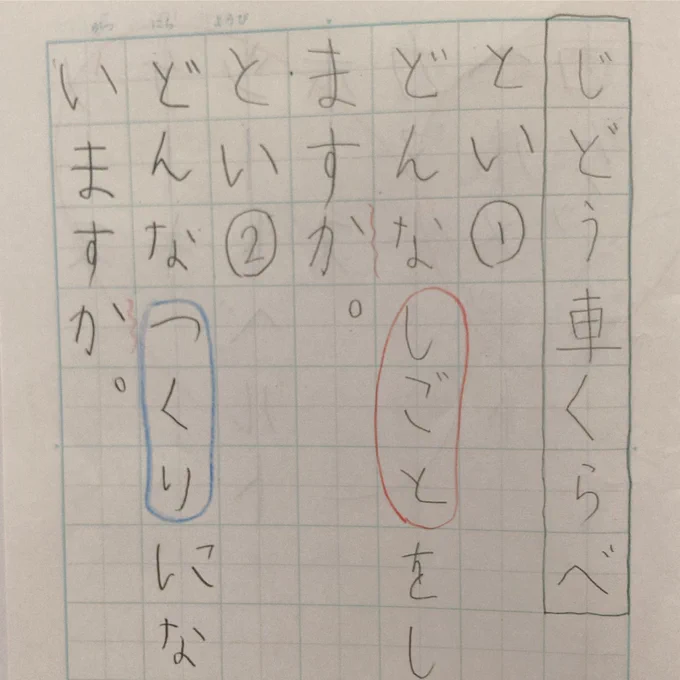 がつ にち ようび
じどう車くらべ
とい①
どんなしごとをし
ますか。
とい②
どんなつくりにな
いますか。